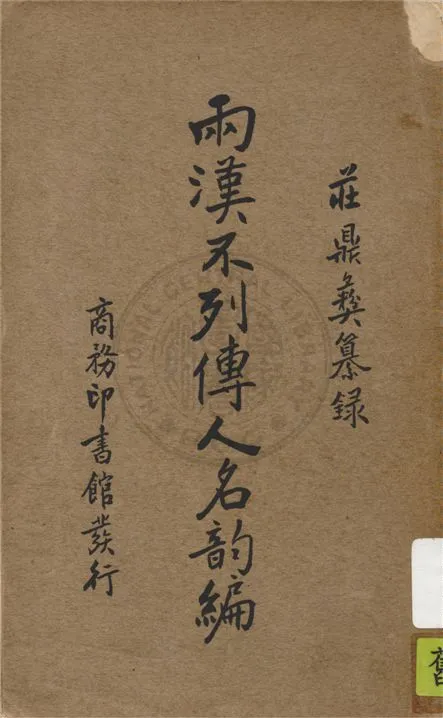 莊鼎彝纂錄
兩漢不列傳人名韵編
商務印書館發行
舊